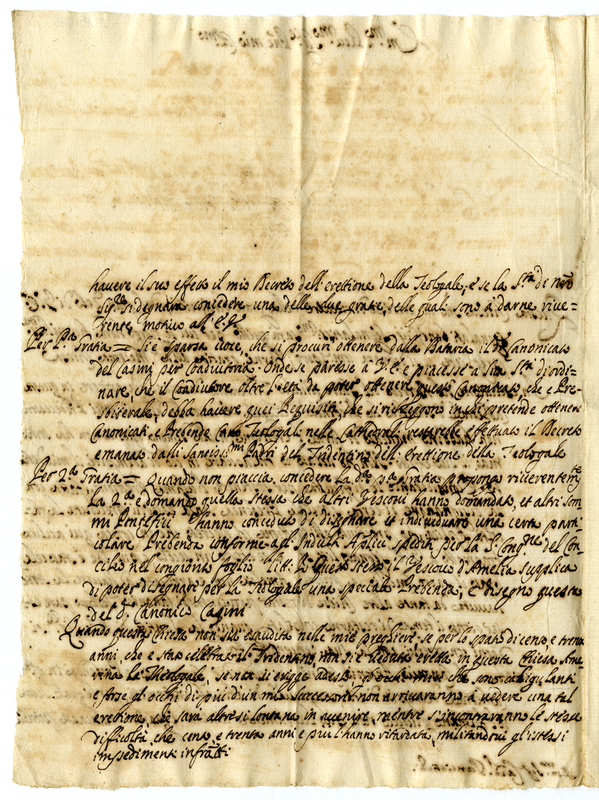 havere il suo effetto il mio Decreto dell'erettione della Teologale, e se la S.tà di nro
Sig.re Indegnava concedere una delle due gratie, delle quali sono à darne rive-
rente motivo all'E.V.
Per p.a Gratia = Si è sparsa voce, che si procuri ottenere dalla Dataria il Canonicato
del Casini per Coadiutoria. Onde se paresse à V.E. e piacesse à Sua S.tà di ordi-
nare, che il Coadiutore oltre l'età da poter ottenere questo Canonicato, che è Pre-
sbiterale, debba havere quei Requisiti, che si richieggono in chi pretende ottenere
Canonicati, e Prebende Teologali nelle Cathedrali, restarebbe effettuato il Decreto
emanato dalli Padri del Tridentino dell'Erettione della Teologale
Per 2.a Gratia = Quando non piaccia concedere la d.a p.a Gratia propongo riverentem.te
la 2.a e domando quella stessa che altri Vescovi hanno domandata, et altri Som-
mi Pontefici hanno conceduta di disegnare et individuare una certa parti-
colare Prebenda conforme agl'Indulti Aplici spediti per la S. Cong.ne del Con-
cilio nel congionto foglio Litt: Questo stesso il Vescovo d'Amelia supplica
di poter disegnare per la Teologale una speciale Prebenda, e disegno questa
del d.o Canonico Casini
Quando questa Chiesa non sia esaudita nelle mie preghiere, se per lo spatio di cento, e trenta
anni, che è stato celebrato il Tridentino, non si è veduta eretta in questa Chiesa Ame-
rina la Theologale, se non si erigge adesso gl'occhi miei che sono vigilanti
e forse gl'occhi di più d'un mio successore non arrivaranno à vedere una tal
erettione, che sarà altresì lontana in avvenire, mentre s'incontraranno le stesse
difficoltà, che cento, e trenta anni e più l'hanno ritardata, militandovi gl'istessi
impedimenti infratti